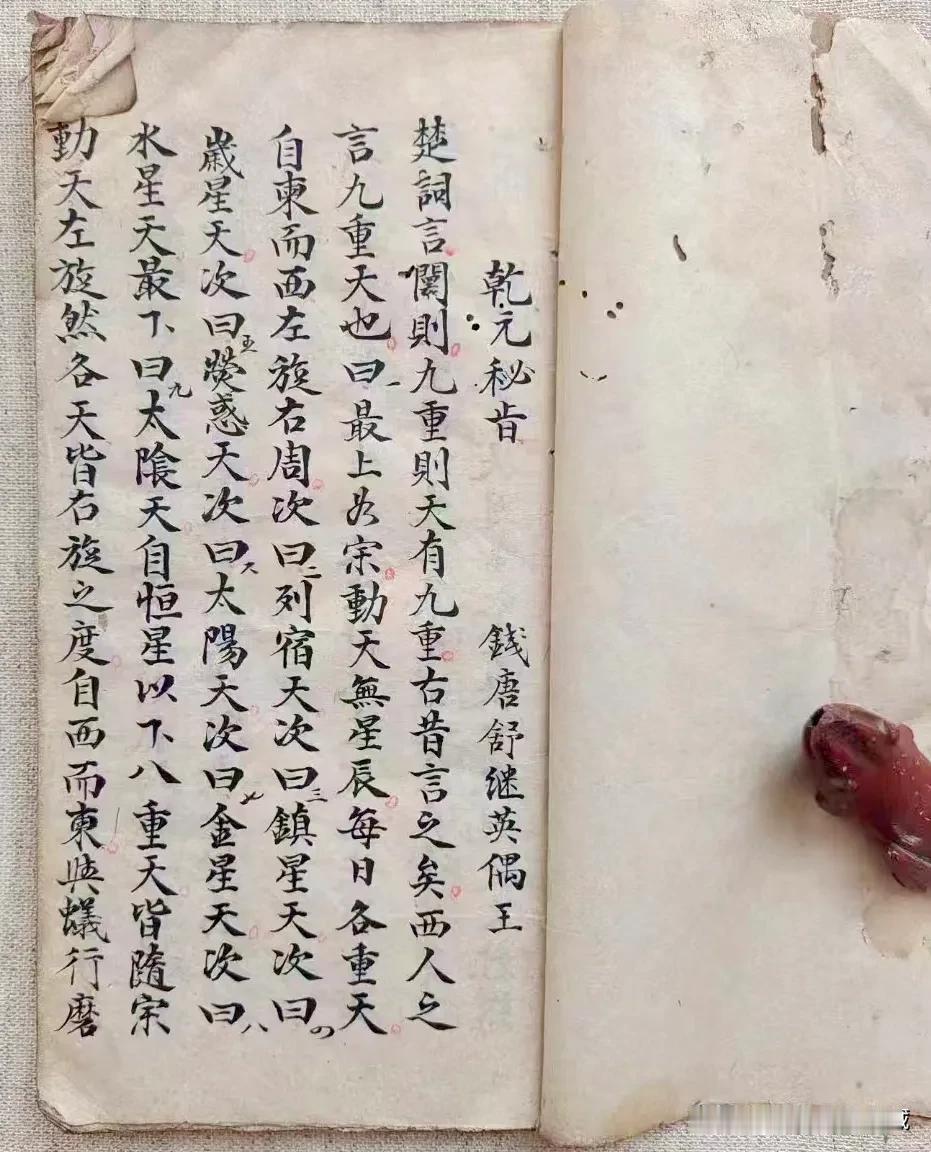 乾元秘旨
錢唐舒继英偶王
楚詞言闓則九重則天有九重右昔言之矣西人之
言九重天也曰一最上为宗動天無星辰每日各重天
自東而西左旋右周次曰二列宿天次曰三鎮星天次曰四
歲星天次曰五熒惑天次曰六太陽天次曰七金星天次曰八
水星天最下曰九太陰天自恒星以下八重天皆隨宗
動天左旋然各天皆右旋之度自西而東與蟻行磨